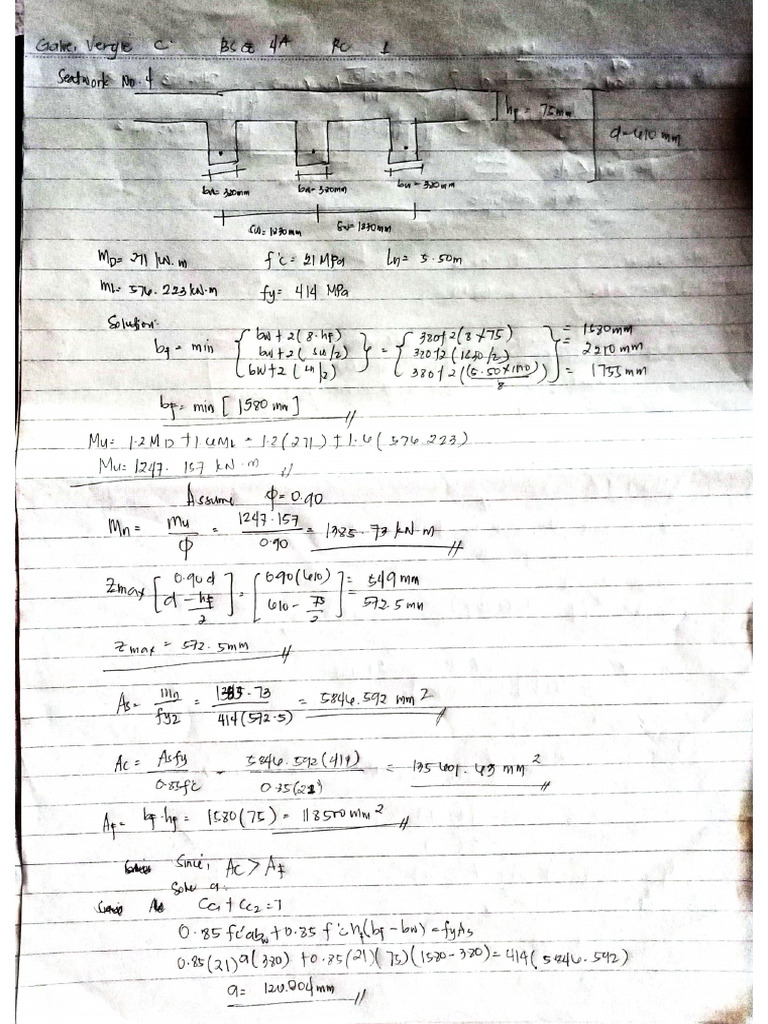 Galve, Vergie C. BSCE 4A RC 1
Seatwork No. 4
hf = 75mm
d=610 mm
bw=380mm bw=380mm bw=380mm
Sw=1830mm Sw=1830mm
MD= 271 kN.m f'c = 21 MPa Ln= 5.50m
ML= 576.223 kN.m fy= 414 MPa
Solution:
bf = min { bw+2(8·hf) } = { 380+2(8×75) } = 1580mm
bw+2(sw/2) 380+2(1830/2) = 2210mm
bw+2(Ln/8) 380+2((5.50×1000)/8) = 1755mm
bf= min [1580 mm]
Mu= 1.2MD +1.6ML = 1.2(271) + 1.6(576.223)
Mu= 1247.157 kN.m
Assume φ=0.90
Mn= Mu/φ = 1247.157/0.90 = 1385.73 kN.m
Zmax [ 0.90d ] = [ 0.90(610) ] = 549 mm
d - hf/2 610 - 75/2 = 572.5mm
Zmax = 572.5mm
As= Mn/fyz = 1385.73/414(572.5) = 5846.592 mm²
Ac = Asfy/0.85f'c = 5846.592(414)/0.85(21) = 135601.43 mm²
Af= bf·hf = 1580(75) = 118500mm²
Since, Ac > Af
Solve a:
Cc1 + Cc2 = T
0.85 fc'abw + 0.85 f'c hf(bf-bw) = fyAs
0.85(21)a(380) + 0.85(21)(75)(1580-380) = 414(5846.592)
a= 120.004mm